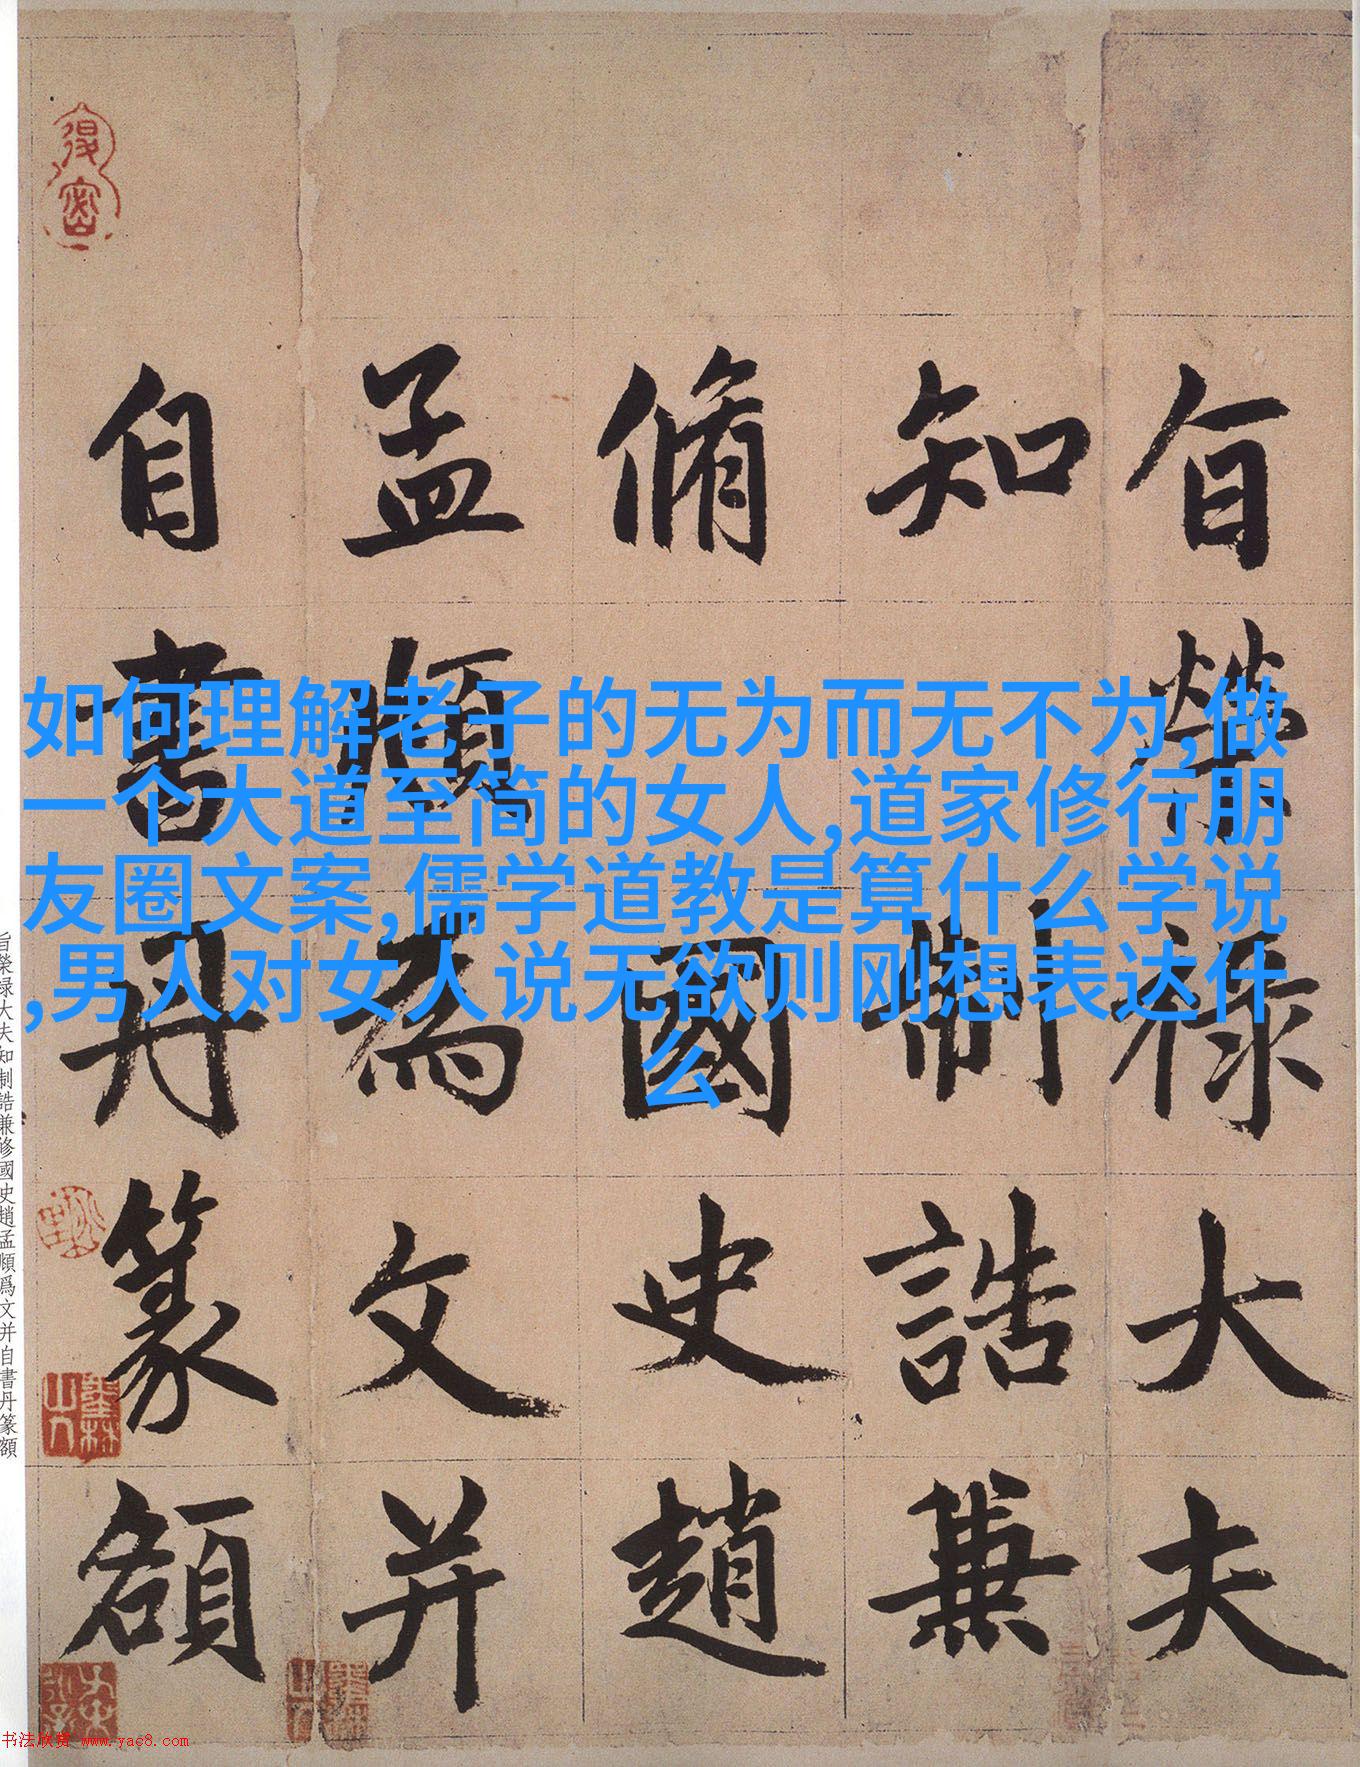 如何理解老子的无为而无不为,做
一个大道至简的女人,道家修行朋
友圈文案,儒学道教是算什么学说
,男人对女人说无欲则刚想表达什
么
旨榮祿大夫
知制誥兼
脩國史趙
孟頫為文并
自書丹篆額
旨榮祿大夫知制誥兼修國史趙孟頫爲文并自書丹篆額
书法欣赏 www.yac8.com